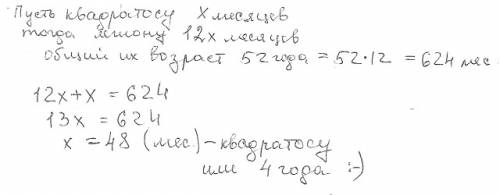 Пусть квадратосу x месяцев
тогда лешону 12x месяцев
общий их возраст 52 года = 52·12 = 624 мес.
12x+x = 624
13x = 624
x = 48 (мес.) - квадратосу
или 4 года :-)